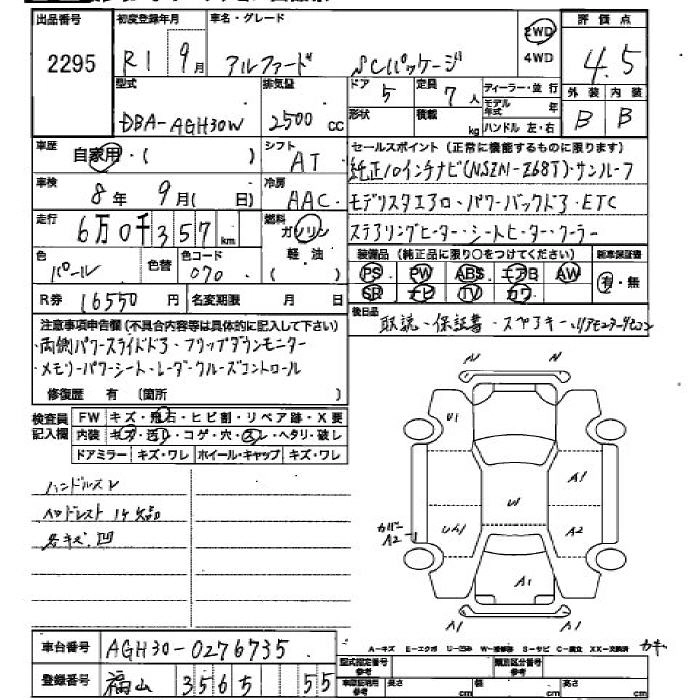 出品番号 2295
初度登録年月 R1 9月
車名・グレード アルファード SCパッケージ
2WD 4WD
評価点 4.5
外装 内装
B B
型式 DBA-AGH30W
排気量 2500cc
ドア 5
形状
定員 7人
積載 kg
ディーラー・並行
モデル年式 年
ハンドル 左・右
車歴 自家用・( )
シフト AT
車検 8年9月( 日)
冷房 AAC
走行 6万0千357km
燃料 ガソリン 軽油 ( )
色 パール
色替
色コード 070
R券 16550円
名変期限 月 日
セールスポイント(正常に機能するものに限ります)
純正10インチナビ(NSZN-Z68T)・サンルーフ
モデリスタエアロ・パワーバックドア・ETC
ステアリングヒーター・シートヒーター・クーラー
装備品(純正品に限り○をつけてください)
新車保証書 有・無
PS PW ABS エアB AW
SR ナビ TV カワ
後日品 取説・保証書・スペアキー・リアモニターリモコン
注意事項申告欄(不具合内容等は具体的に記入して下さい)
・両側パワースライドドア・フリップダウンモニター
・メモリーパワーシート・レーダークルーズコントロール
修復歴 有 (箇所 )
検査員記入欄
FW キズ・飛石・ヒビ割・リペア跡・X要
内装 キズ・汚レ・コゲ・穴・スレ・ヘタリ・破レ
ドアミラー キズ・ワレ ホイール・キャップ キズ・ワレ
ハンドルスレ
ヘッドレスト1ケ欠品
各キズ凹
N N
U1
A1
U1
UA1
A2
カバーA2
A1
A1 A1
A-キズ E-エクボ U-凹み W-補修跡 S-サビ C-腐食 XX-交換済
車台番号 AGH30-0276735
登録番号 福山 3565 55
型式指定番号 参考
類別区分番号 参考
長さ cm 幅 cm 高さ cm